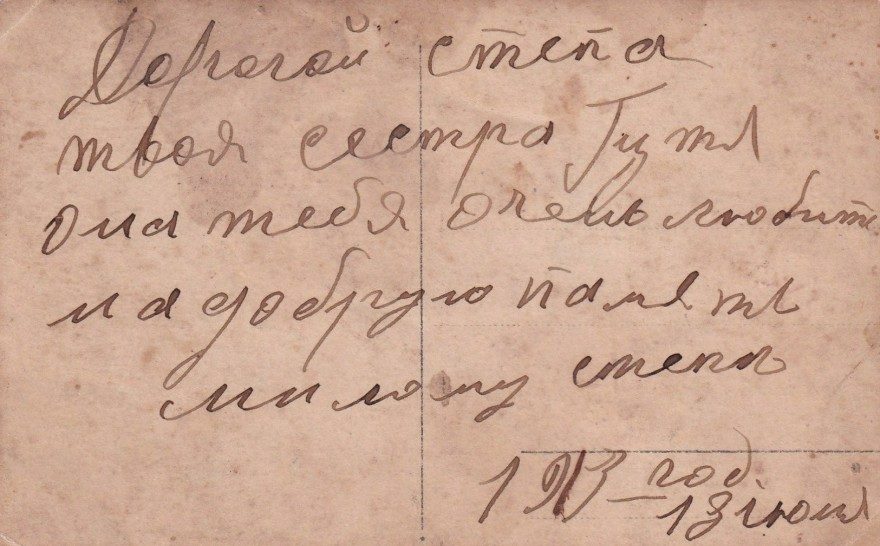 Дорогой степа
твоя сестра
она тебя очень любит
на добрую паметь
милому
1913 год
13